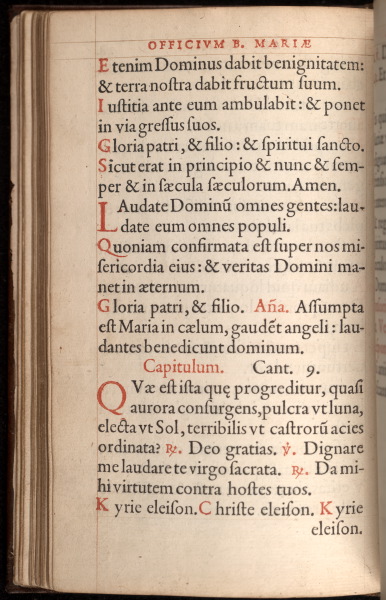 OFFICIVM B. MARIÆ
Etenim Dominus dabit benignitatem:
& terra noſtra dabit fructum ſuum.
Iuſtitia ante eum ambulabit: & ponet
in via greſſus ſuos.
Gloria patri, & filio: & ſpiritui ſancto.
Sicut erat in principio & nunc & ſem-
per & in ſæcula ſæculorum. Amen.
LAudate Dominū omnes gentes: lau-
date eum omnes populi.
Quoniam confirmata eſt ſuper nos mi-
ſericordia eius: & veritas Domini ma-
net in æternum.
Gloria patri, & filio. Aña. Aſſumpta
eſt Maria in cælum, gaudēt angeli: lau-
dantes benedicunt dominum.
Capitulum. Cant. 9.
QVæ eſt iſta quę progreditur, quaſi
aurora conſurgens, pulcra vt luna,
electa vt Sol, terribilis vt caſtrorū acies
ordinata? ℞. Deo gratias. ℣. Dignare
me laudare te virgo ſacrata. ℞. Da mi-
hi virtutem contra hoſtes tuos.
Kyrie eleiſon. Chriſte eleiſon. Kyrie
eleiſon.